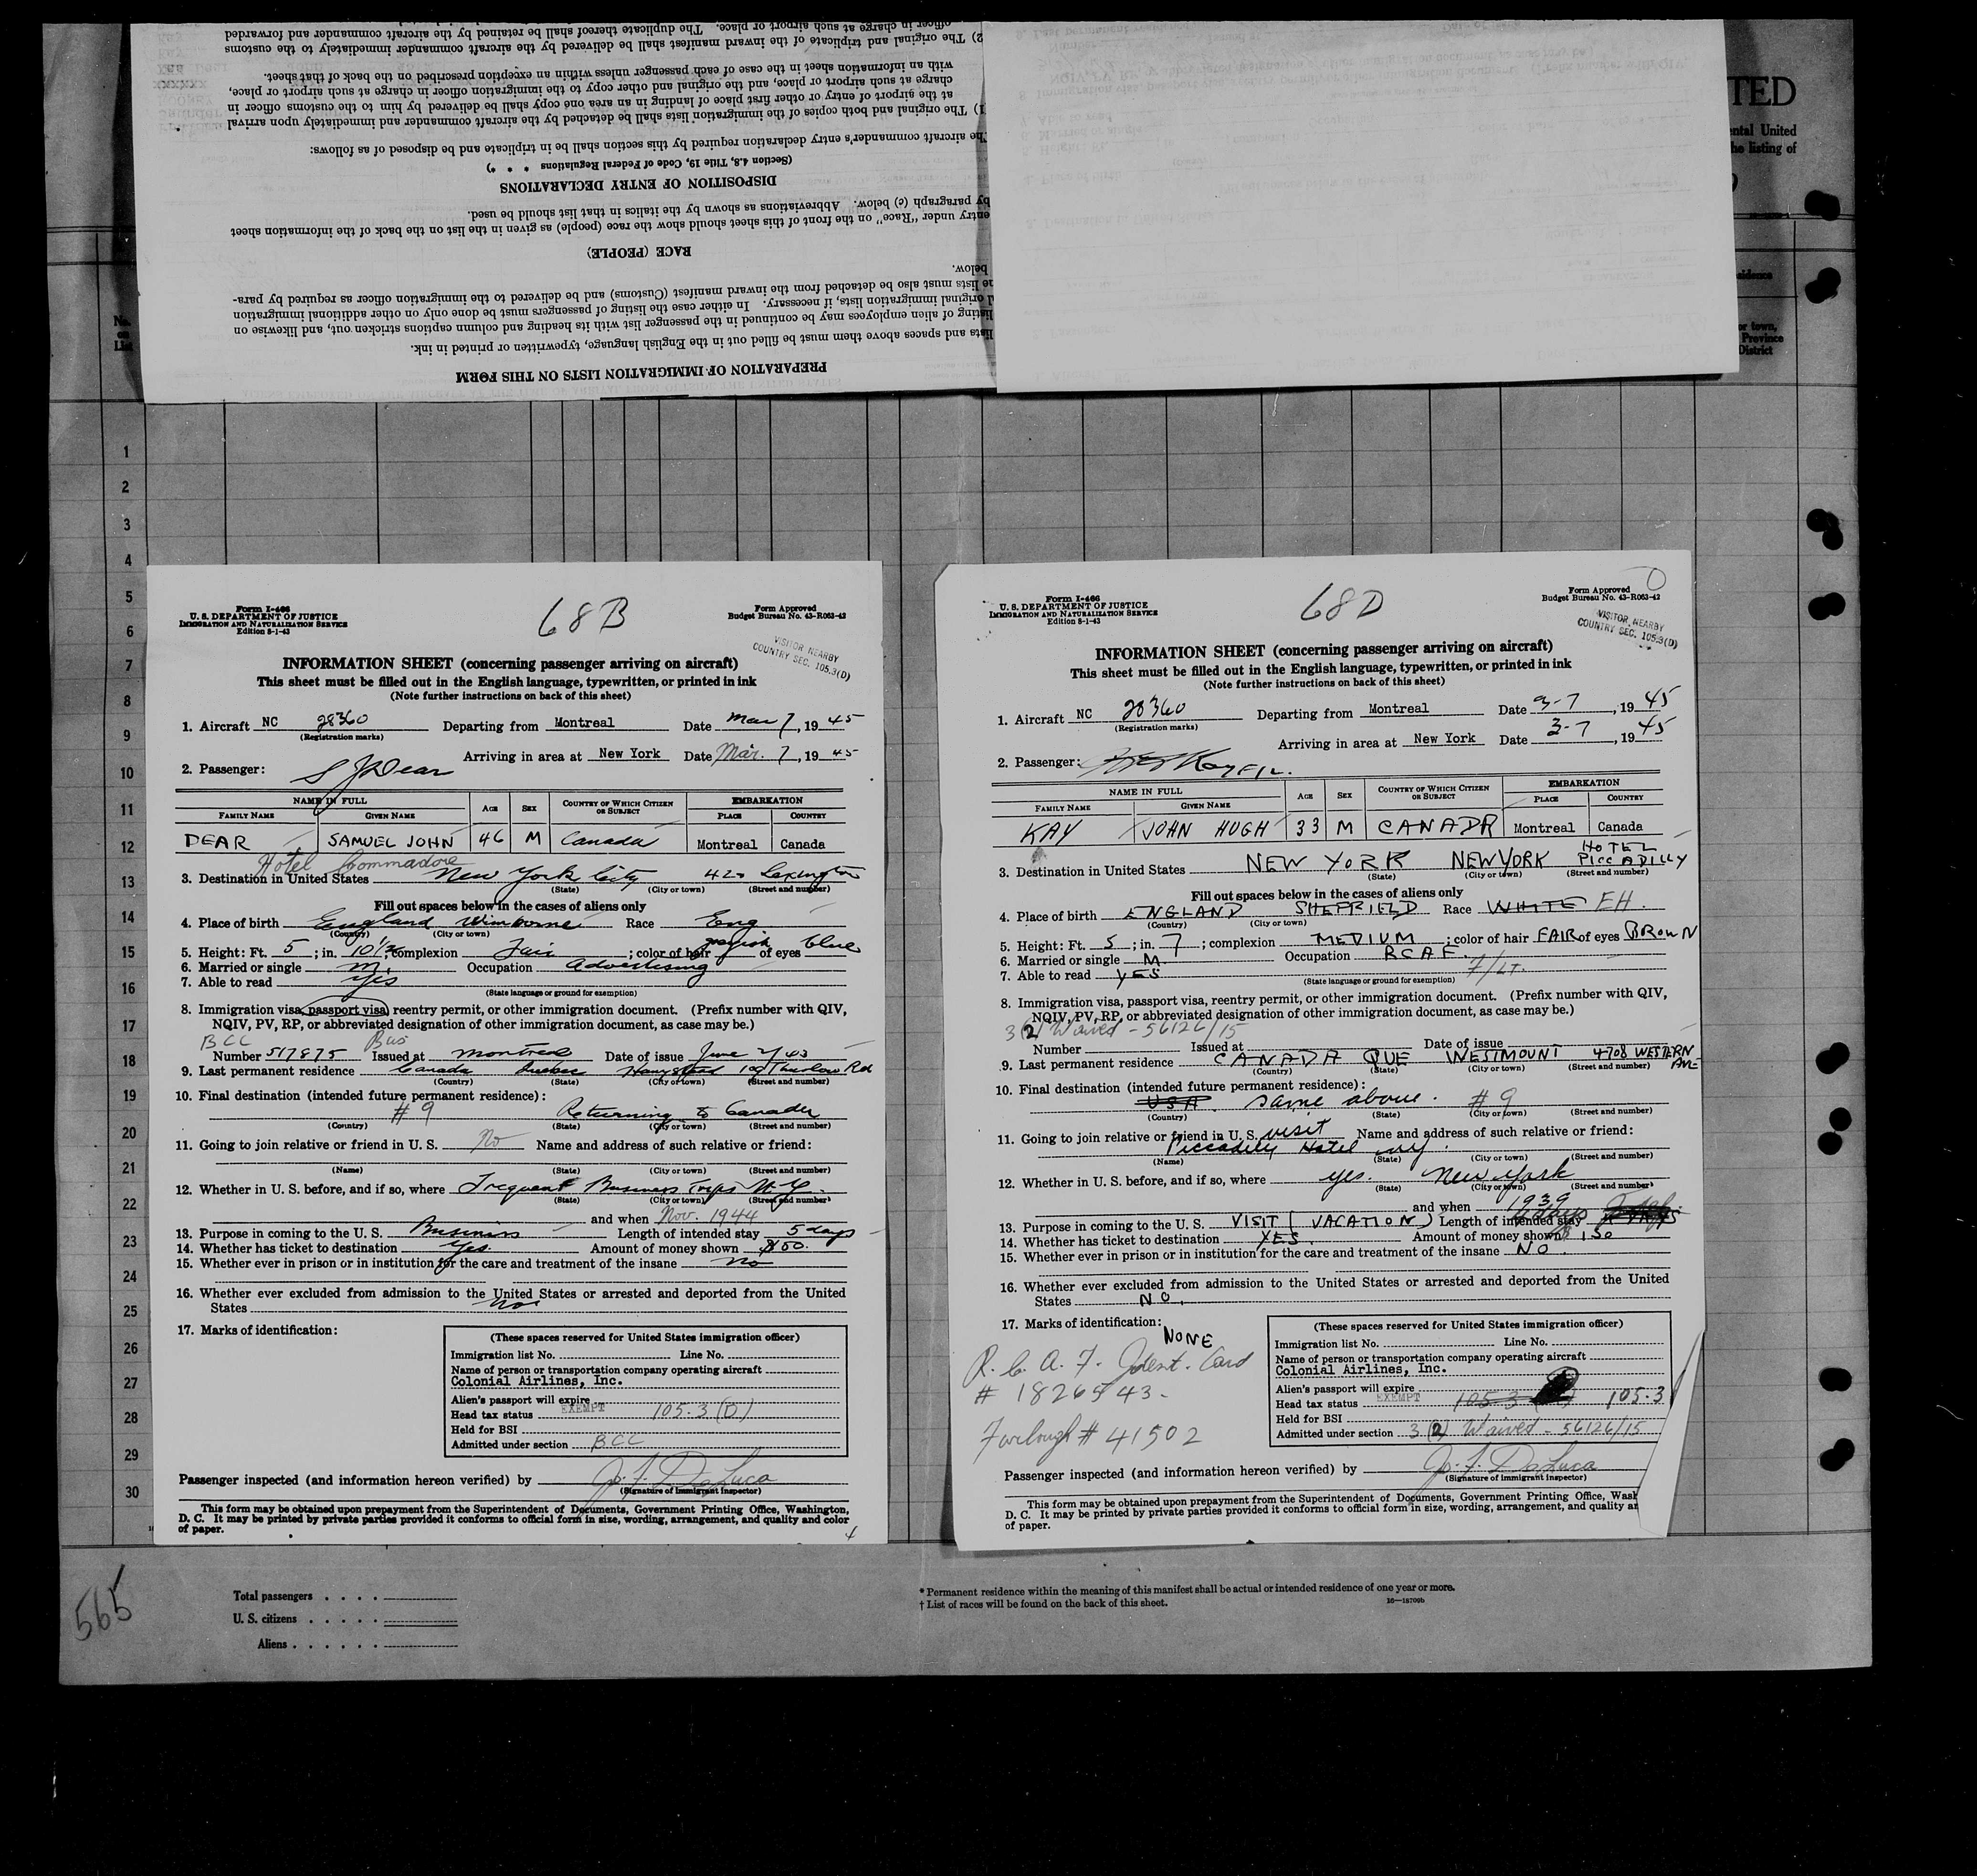 PREPARATION OF IMMIGRATION LISTS ON THIS FORM
lists and spaces above them must be filled out in the English language, typewritten or printed in ink.
listing of alien employees may be continued in the passenger list with its heading and column captions stricken out, and likewise on
original immigration lists, if necessary. In either case the listing of passengers must be done only on other additional immigration
lists must also be detached from the inward manifest (Customs) and be delivered to the immigration officer as required by para-
below.
RACE (PEOPLE)
entry under "Race" on the front of this sheet should show the race (people) as given in the list on the back of the information sheet
by paragraph (c) below. Abbreviations as shown by the italics in that list should be used.
DISPOSITION OF ENTRY DECLARATIONS
(Section 4.8, Title 19, Code of Federal Regulations * * *)
The aircraft commander's entry declaration required by this section shall be in triplicate and be disposed of as follows:
1) The original and both copies of the immigration lists shall be detached by the aircraft commander and immediately upon arrival
at the airport of entry or other first place of landing in an area one copy shall be delivered by him to the customs officer in
charge at such airport or place, and the original and other copy to the immigration officer in charge at such airport or place,
with an information sheet in the case of each passenger unless within an exception prescribed on the back of that sheet.
2) The original and triplicate of the inward manifest shall be delivered by the aircraft commander immediately to the customs
officer in charge at such airport or place. The duplicate thereof shall be retained by the aircraft commander and forwarded
TED
ental United
he listing of
or town,
Province
District
1
2
3
4
5
6
7
8
9
10
11
12
13
14
15
16
17
18
19
20
21
22
23
24
25
26
27
28
29
30
Form I-466
U. S. DEPARTMENT OF JUSTICE
IMMIGRATION AND NATURALIZATION SERVICE
Edition 8-1-43
68B
Form Approved
Budget Bureau No. 43-R063-42
VISITOR NEARBY
COUNTRY SEC. 105.3(D)
INFORMATION SHEET (concerning passenger arriving on aircraft)
This sheet must be filled out in the English language, typewritten, or printed in ink
(Note further instructions on back of this sheet)
1. Aircraft NC 28360 Departing from Montreal Date Mar 7, 19 45
(Registration marks)
Arriving in area at New York Date Mar. 7, 19 45
2. Passenger: S J Dear
NAME IN FULL AGE SEX COUNTRY OF WHICH CITIZEN OR SUBJECT EMBARKATION
FAMILY NAME GIVEN NAME PLACE COUNTRY
DEAR SAMUEL JOHN 46 M Canada Montreal Canada
Hotel Commadore
3. Destination in United States New York City 420 Lexington
(State) (City or town) (Street and number)
Fill out spaces below in the cases of aliens only
4. Place of birth England Winborne Race Eng
(Country) (City or town)
5. Height: Ft. 5; in. 10½; complexion Fair; color of hair grayish of eyes blue
6. Married or single M. Occupation Advertising
7. Able to read yes
(State language or ground for exemption)
8. Immigration visa, passport visa, reentry permit, or other immigration document. (Prefix number with QIV,
NQIV, PV, RP, or abbreviated designation of other immigration document, as case may be.)
BCC Bus
Number 517875 Issued at Montreal Date of issue June 2/43
9. Last permanent residence Canada Quebec Hampstead 109 Thurlow Rd
(Country) (State) (City or town) (Street and number)
10. Final destination (intended future permanent residence):
# 9 Returning to Canada
(Country) (State) (City or town) (Street and number)
11. Going to join relative or friend in U. S. No Name and address of such relative or friend:
(Name) (State) (City or town) (Street and number)
12. Whether in U. S. before, and if so, where Frequent Business Trips N.Y.
(State) (City or town) (Street and number)
and when Nov. 1944
13. Purpose in coming to the U. S. Business Length of intended stay 5 days
14. Whether has ticket to destination Yes. Amount of money shown $50.
15. Whether ever in prison or in institution for the care and treatment of the insane no
16. Whether ever excluded from admission to the United States or arrested and deported from the United
States no
17. Marks of identification:
(These spaces reserved for United States immigration officer)
Immigration list No. Line No.
Name of person or transportation company operating aircraft
Colonial Airlines, Inc.
Alien's passport will expire
Head tax status EXEMPT 105.3 (D)
Held for BSI
Admitted under section BCC
Passenger inspected (and information hereon verified) by Jo. F. DeLuca
(Signature of immigrant inspector)
This form may be obtained upon prepayment from the Superintendent of Documents, Government Printing Office, Washington,
D. C. It may be printed by private parties provided it conforms to official form in size, wording, arrangement, and quality and color
of paper.
Form I-466
U. S. DEPARTMENT OF JUSTICE
IMMIGRATION AND NATURALIZATION SERVICE
Edition 8-1-43
68D
Form Approved
Budget Bureau No. 43-R063-42
VISITOR NEARBY
COUNTRY SEC. 105.3(D)
INFORMATION SHEET (concerning passenger arriving on aircraft)
This sheet must be filled out in the English language, typewritten, or printed in ink
(Note further instructions on back of this sheet)
1. Aircraft NC 28360 Departing from Montreal Date 3-7, 19 45
(Registration marks)
Arriving in area at New York Date 3-7, 19 45
2. Passenger: Kay F/L.
NAME IN FULL AGE SEX COUNTRY OF WHICH CITIZEN OR SUBJECT EMBARKATION
FAMILY NAME GIVEN NAME PLACE COUNTRY
KAY JOHN HUGH 33 M CANADA Montreal Canada
HOTEL
3. Destination in United States NEW YORK NEW YORK PICCADILLY
(State) (City or town) (Street and number)
Fill out spaces below in the cases of aliens only
4. Place of birth ENGLAND SHEFFIELD Race WHITE EH.
(Country) (City or town)
5. Height: Ft. 5; in. 7; complexion MEDIUM; color of hair FAIR of eyes BROWN
6. Married or single M. Occupation RCAF.
7. Able to read YES F/LT.
(State language or ground for exemption)
8. Immigration visa, passport visa, reentry permit, or other immigration document. (Prefix number with QIV,
NQIV, PV, RP, or abbreviated designation of other immigration document, as case may be.)
3(2) Waived - 56126/15
Number Issued at Date of issue
9. Last permanent residence CANADA QUE WESTMOUNT 4708 WESTERN AVE
(Country) (State) (City or town) (Street and number)
10. Final destination (intended future permanent residence):
USA. same above. # 9
(Country) (State) (City or town) (Street and number)
11. Going to join relative or friend in U. S. visit Name and address of such relative or friend:
Piccadilly Hotel NY.
(Name) (State) (City or town) (Street and number)
12. Whether in U. S. before, and if so, where yes. New York
(State) (City or town) (Street and number)
and when 1939
13. Purpose in coming to the U. S. VISIT (VACATION) Length of intended stay days
14. Whether has ticket to destination YES. Amount of money shown $150
15. Whether ever in prison or in institution for the care and treatment of the insane NO.
16. Whether ever excluded from admission to the United States or arrested and deported from the United
States NO.
17. Marks of identification: NONE
R. C. A. F. Ident. Card
# 1826543-
Furlough # 41502
(These spaces reserved for United States immigration officer)
Immigration list No. Line No.
Name of person or transportation company operating aircraft
Colonial Airlines, Inc.
Alien's passport will expire
Head tax status EXEMPT 105-3 105.3
Held for BSI
Admitted under section 3 (2) Waived - 56126/15
Passenger inspected (and information hereon verified) by Jo. F. DeLuca
(Signature of immigrant inspector)
This form may be obtained upon prepayment from the Superintendent of Documents, Government Printing Office, Wash
D. C. It may be printed by private parties provided it conforms to official form in size, wording, arrangement, and quality an
of paper.
565
Total passengers . . . .
U. S. citizens . . . . .
Aliens . . . . . .
* Permanent residence within the meaning of this manifest shall be actual or intended residence of one year or more.
† List of races will be found on the back of this sheet.
16—18709b